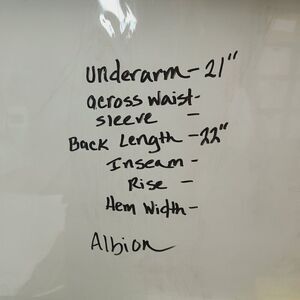 underarm - 21"
across waist -
sleeve -
Back Length - 22"
Inseam -
Rise -
Hem Width -
Albion